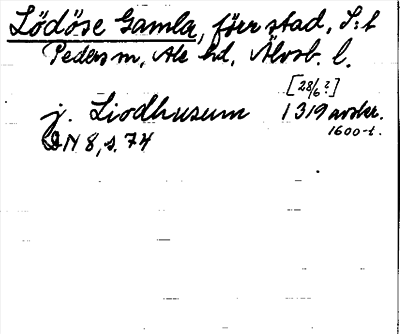 Lödöse Gamla, förr stad, S:t
Peders m, Ale hd, Älvsb. l.
[28/6?]
j. Liodhusum 1319 avskr.
1600-t.
DN 8, s. 74